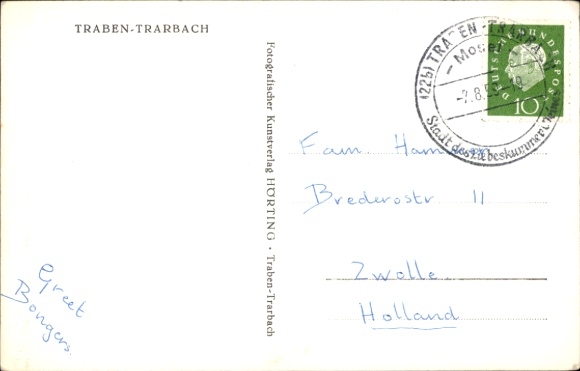 TRABEN-TRARBACH
Greet
Bongers.
Fotografischer Kunstverlag HÖRTING · Traben-Trarbach
(22b) TRABEN-TRARBACH
- Mosel -
-7.8.59-18
Stadt des
DEUTSCHE BUNDESPOST
10
Fam
Brederostr 11
Zwolle
Holland